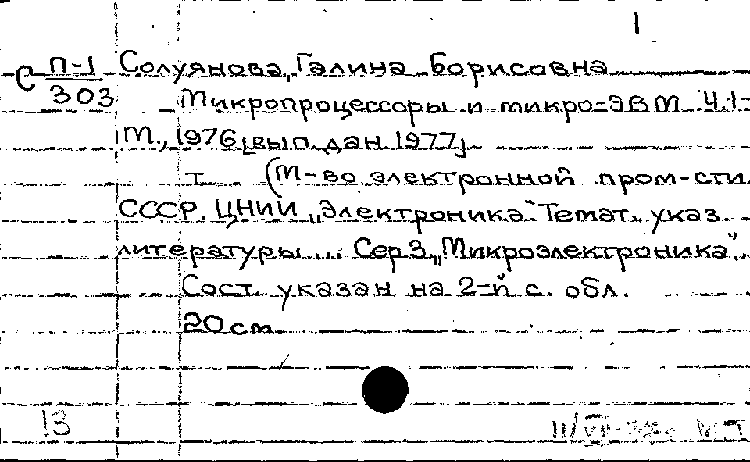 1
С П-1/303 Солуянова, Галина Борисовна
Микропроцессоры и микро-ЭВМ. Ч.1-
М., 1976 [вып. дан. 1977]
т. (М-во электронной пром-сти
СССР. ЦНИИ „Электроника“. Темат. указ.
литературы... Сер 3 „Микроэлектроника“.
Сост. указан на 2-й с. обл.
20 см.
13